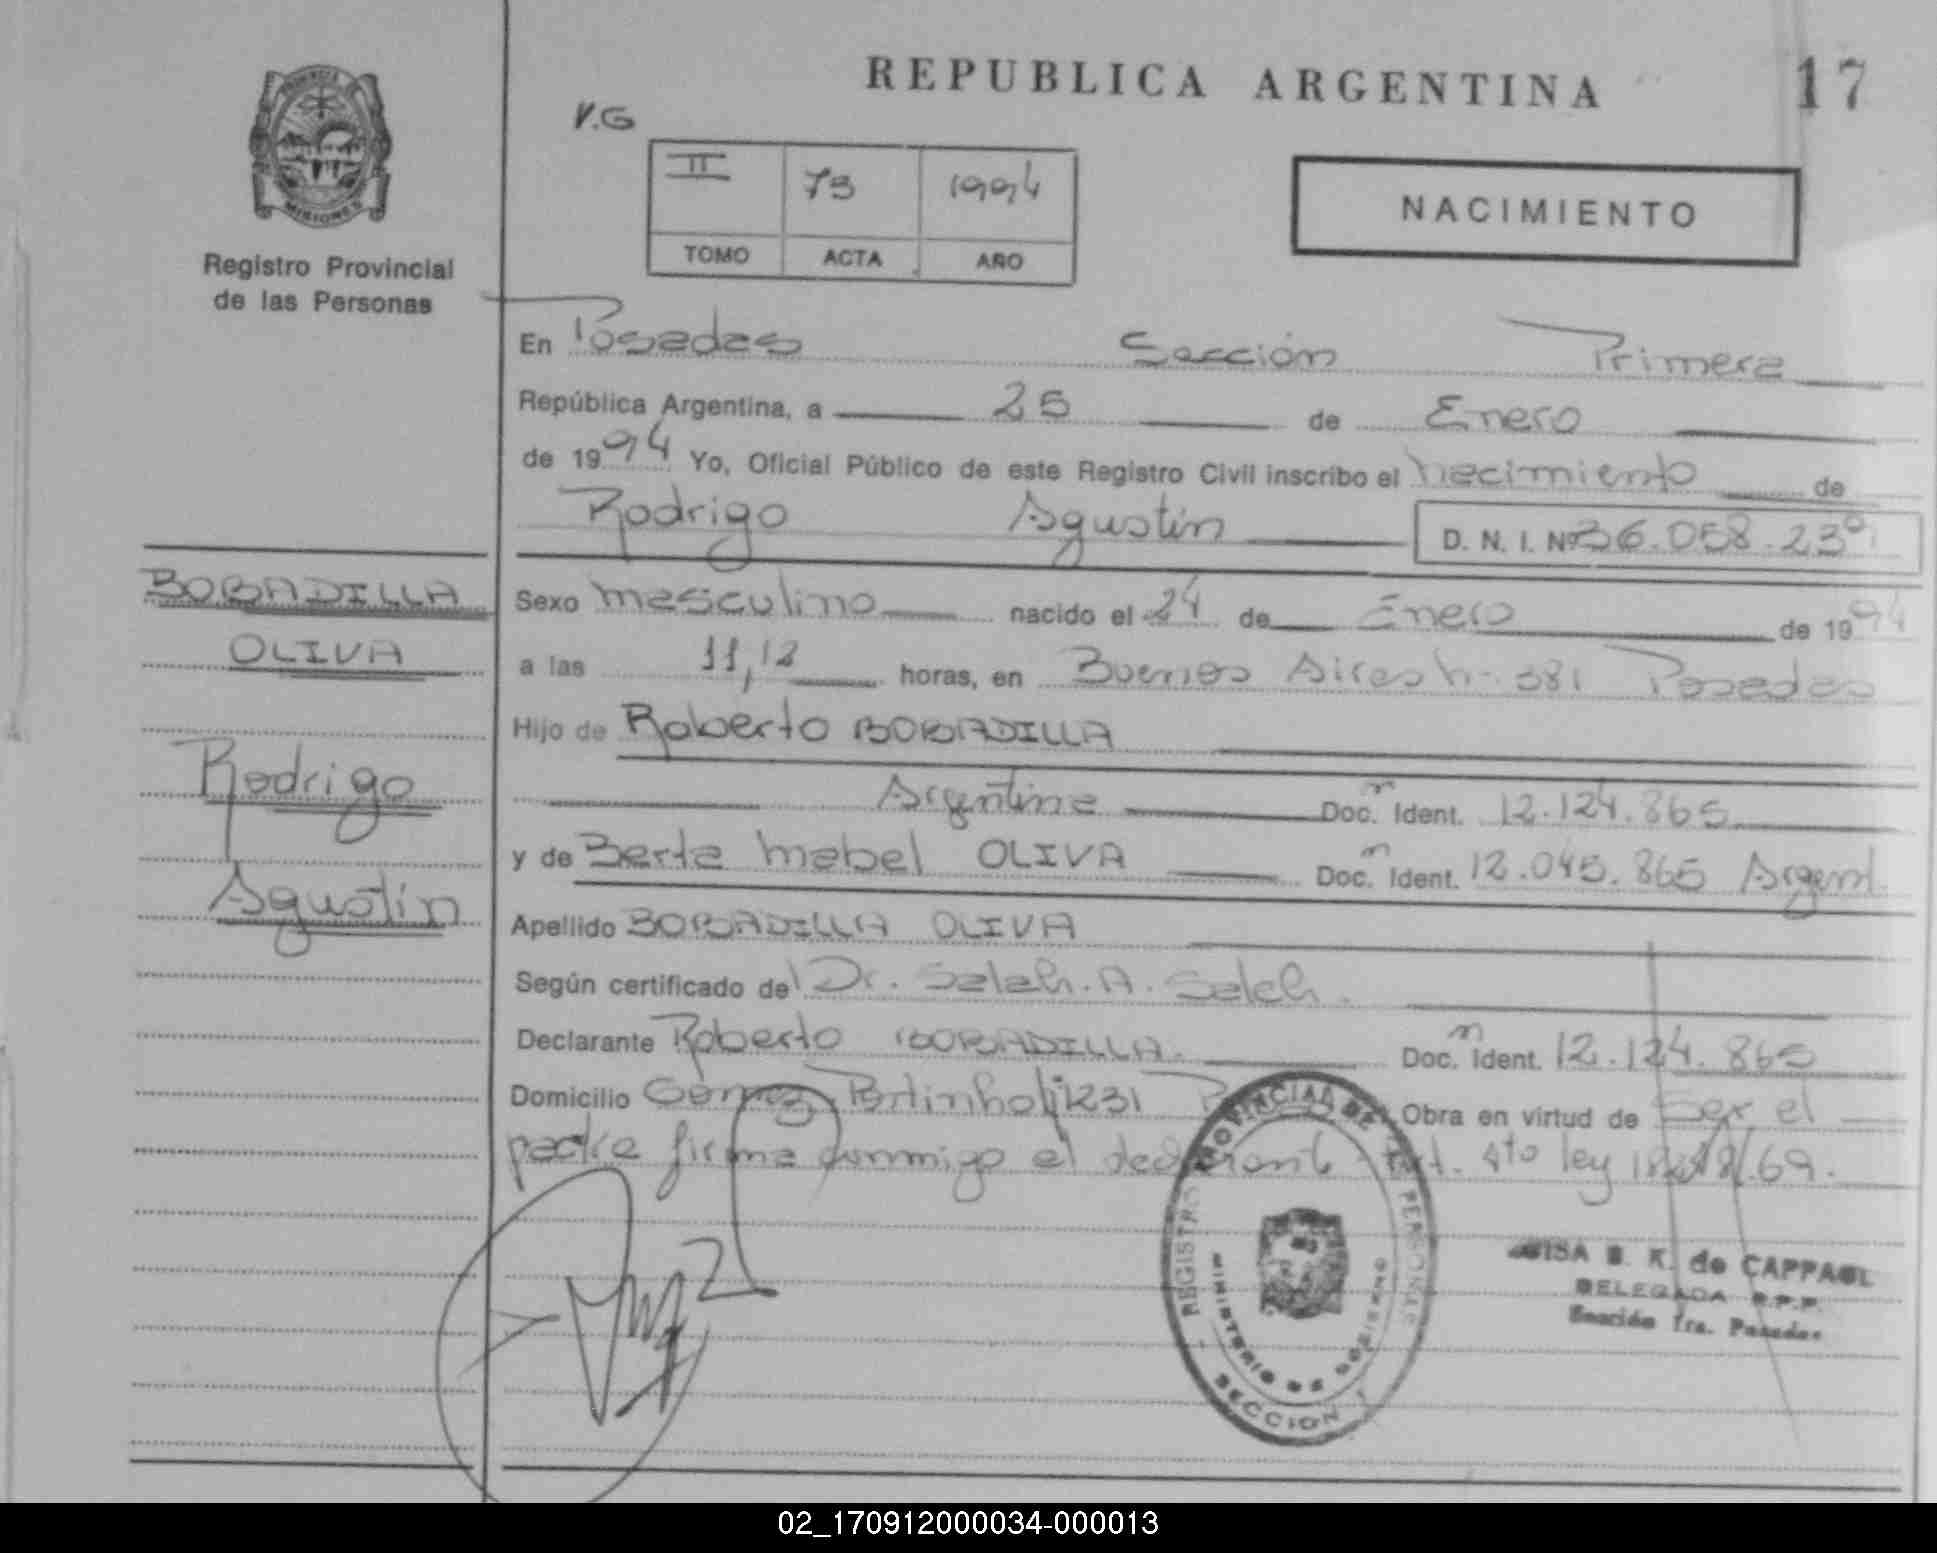 REPUBLICA ARGENTINA
17
V.G
II 73 1994
TOMO ACTA AÑO
NACIMIENTO
MISIONES
Registro Provincial
de las Personas
En Posadas Sección Primera
República Argentina, a 25 de Enero
de 1994 Yo, Oficial Público de este Registro Civil inscribo el nacimiento de
Rodrigo Agustín D. N. I. Nº 36.058.239
BOBADILLA
OLIVA
Rodrigo
Agustín
Sexo masculino nacido el 24 de Enero de 1994
a las 11,12 horas, en Buenos Aires 381 Posadas
Hijo de Roberto BOBADILLA
Argentina Doc. Ident. 12.124.865
y de Berta Mabel OLIVA Doc. Ident. 12.045.865 Argent.
Apellido BOBADILLA OLIVA
Según certificado de Dr. Saleh. A. Saleh.
Declarante Roberto BOBADILLA. Doc. Ident. 12.124.865
Domicilio 1231 Obra en virtud de Ser el
padre firma conmigo el declarante Art. 4to ley
REGISTRO PROVINCIAL DE LAS PERSONAS
MINISTERIO DE GOBIERNO
SECCION
LUISA B. K. de CAPPAGL
DELEGADA R.P.P.
Sección 1ra. Posadas
02_170912000034-000013